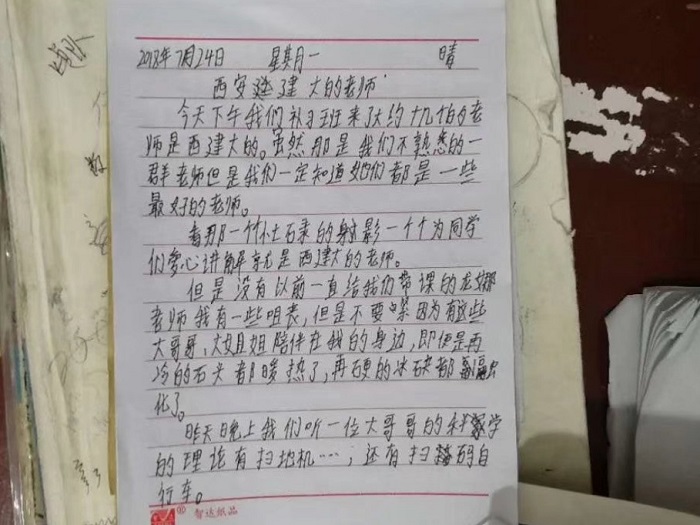 2018年7月24日 星其月一 晴
西安 建大的老师
今天下午我们补习班来了大约十几位的老
师是西建大的。虽然那是我们不熟悉的一
群老师但是我们一定知道她们都是一些
最好的老师。
看那一个个忙石录的射影一个个为同学
们爱心讲解就是西建大的老师。
但是没有以前一直给我们带课的龙娜
老师我有一些咀丧,但是不要紧因为有这些
大哥哥、大姐姐陪伴在我的身边,即便是再
冷的石头都暖热了,再硬的冰块都融
化了。
昨天晚上我们听一位大哥哥的科学
的理论有扫地机…;还有扫码自
行车。
智达纸品